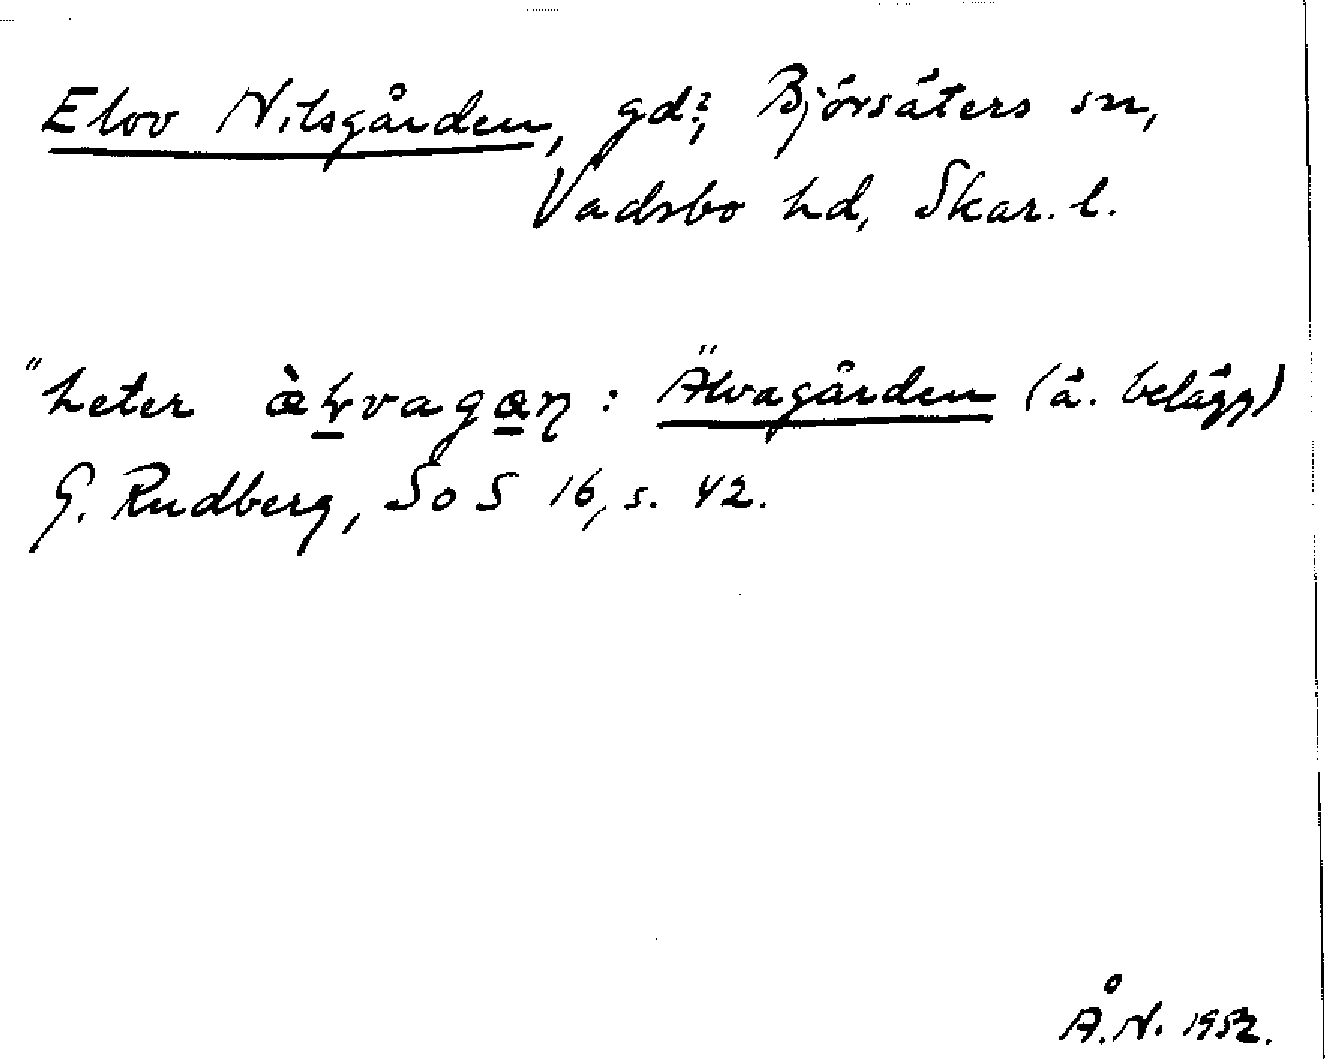 Elov Nilsgården, gd?, Björsäters sn,
Vadsbo hd, Skar. l.
"heter æ̀ƚvagæn : Älvagården (ä. belägg)
G. Rudberg, SoS 16, s. 42.
Å.N. 1952.